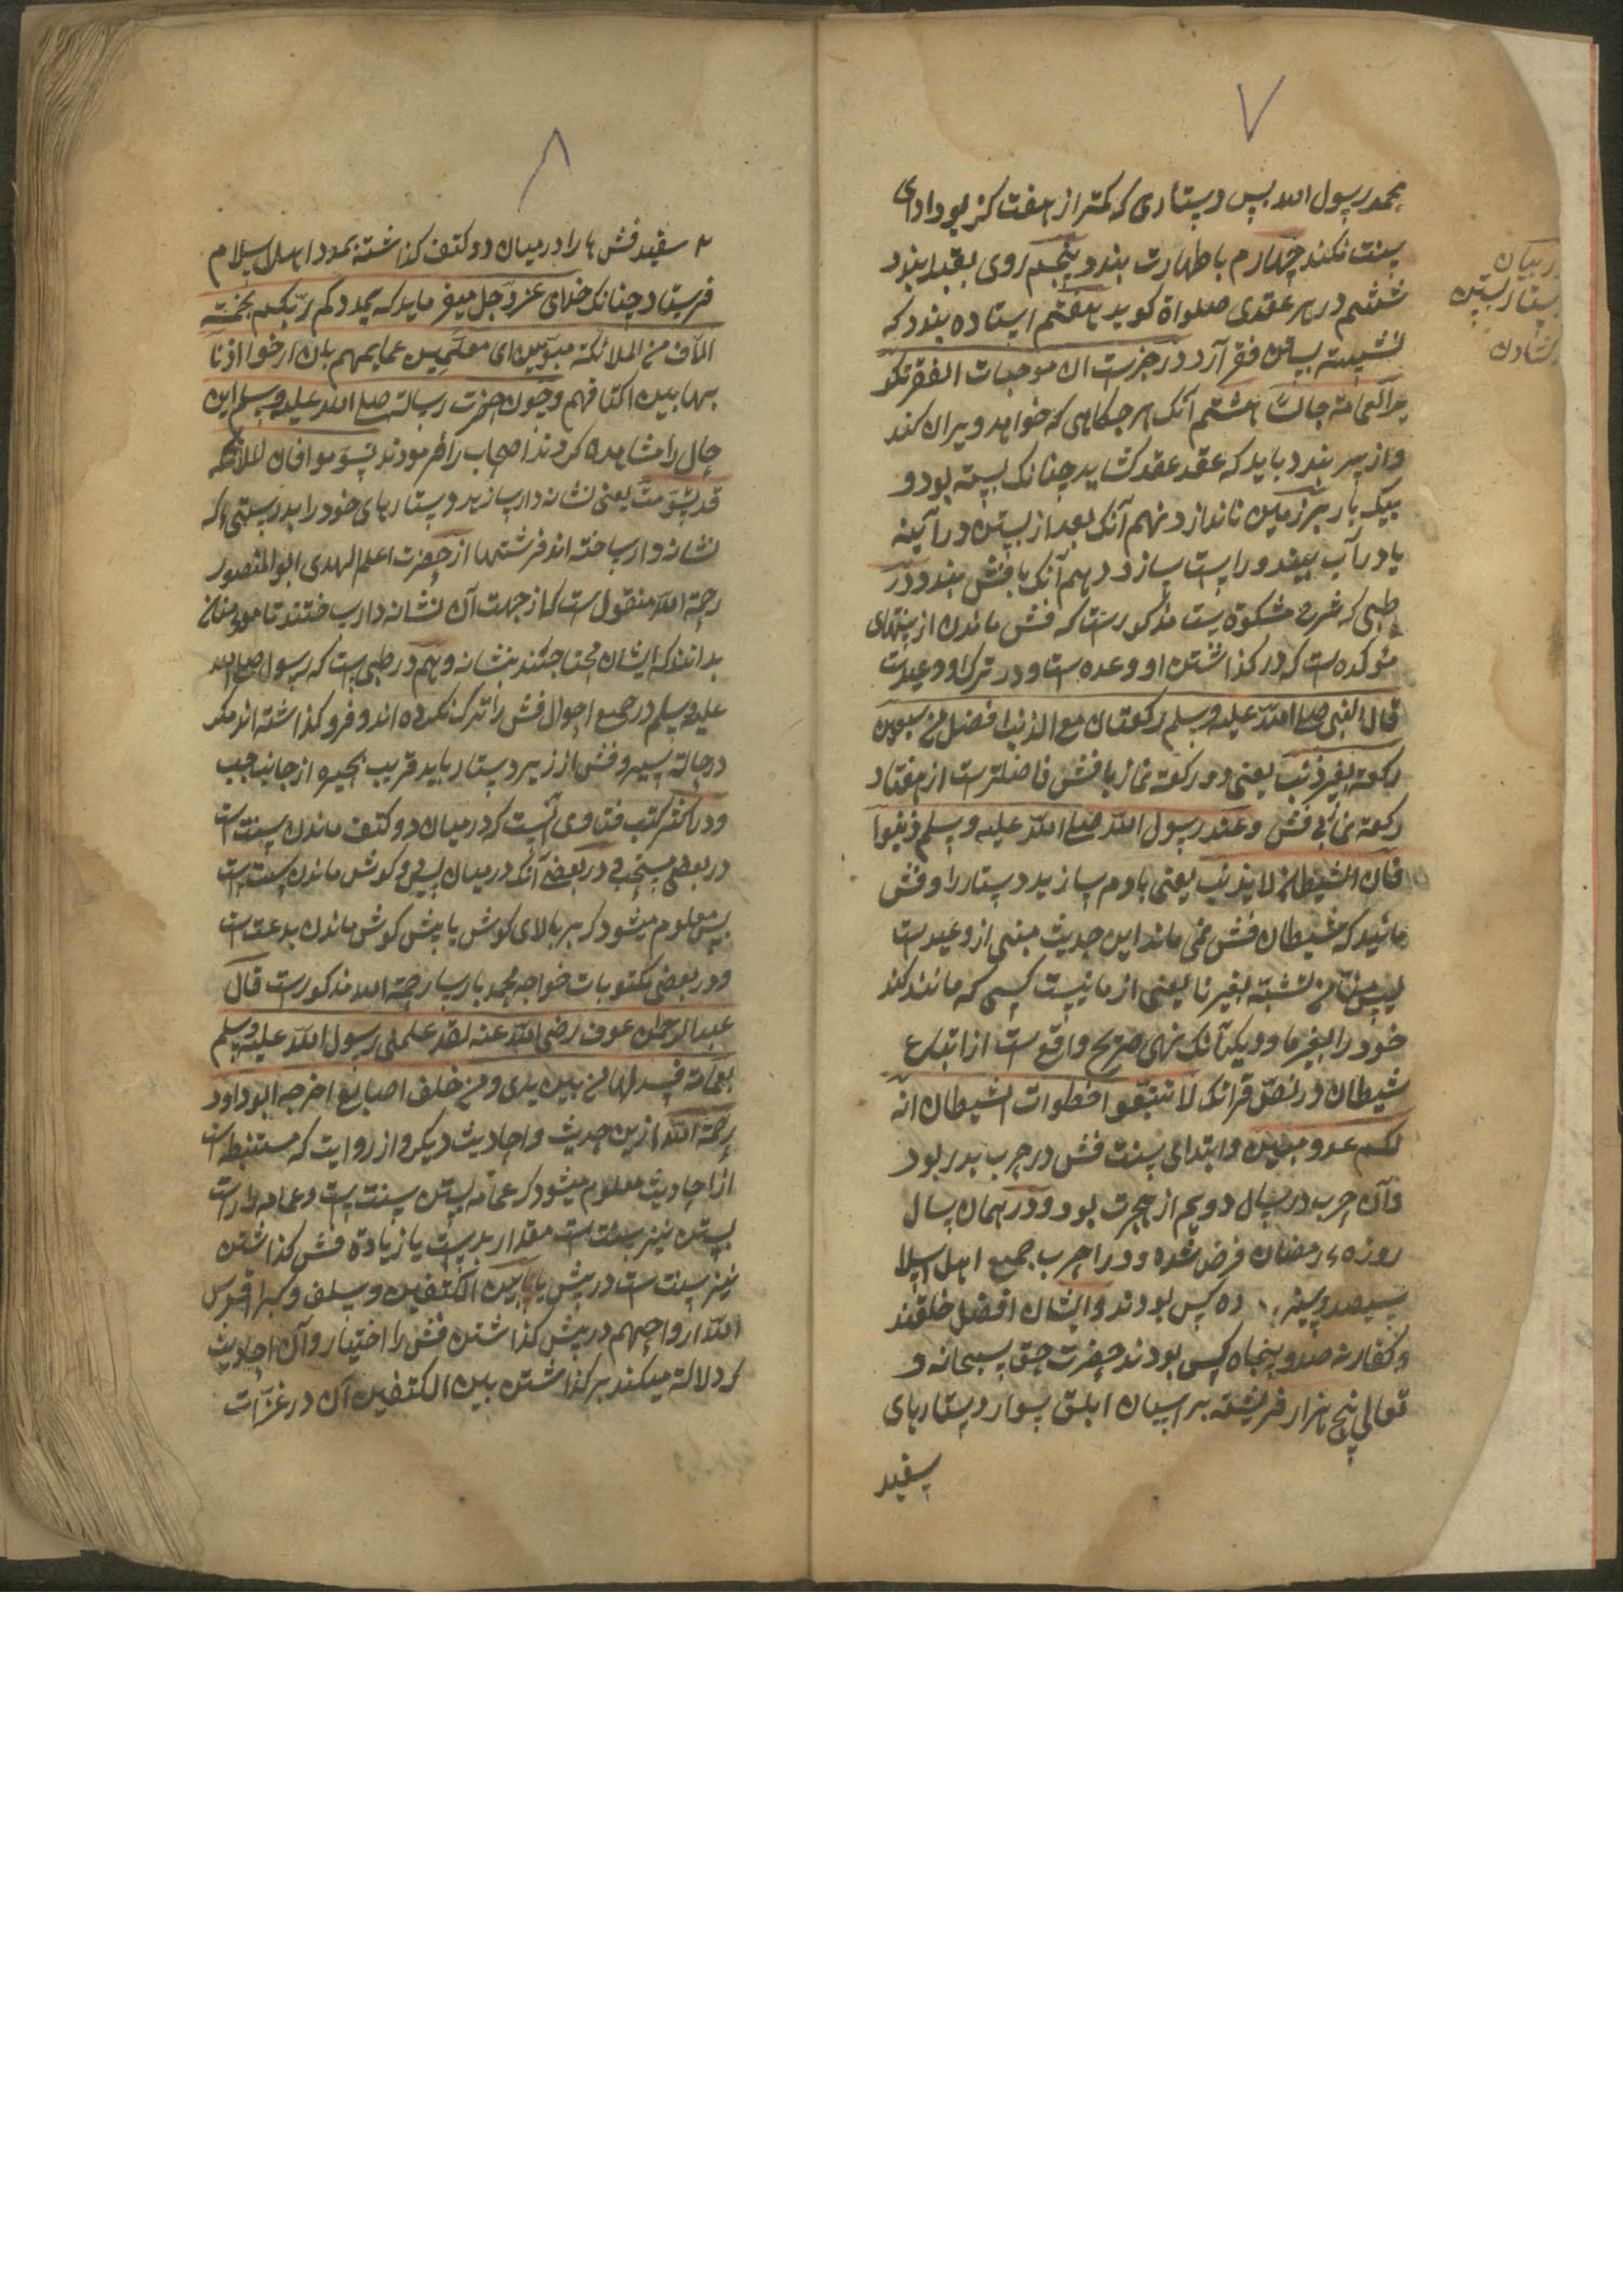 ۷
محمد رسول الله پس دستاری که کمتر از هفت کز بود ادای
سنت نکند چهارم با طهارت بندد پنجم روی بقبله بندد
ششم در هر عقدی صلواة کوید هفتم ایستاده بندد که
نشسته بستن فقر آرد در خبرست ان موجبات الفقر
العمامة جالسا هشتم آنک هر جکاهی که خواهد ویران کند
و از سر بندد باید که عقد عقد کشاید چنانک بسته بود و
بیک بار بر زمین ناندازد نهم آنک بعد از بستن در آیینه
یا در آب بیند و راست سازد دهم آنک با فش بندد و در
طیبی که شرح مشکوة یست مذکورست که فش ماندن از سنتهای
مؤکده است که در کذاشتن او وعده است و در ترک او وعیدست
قال النبی صلی الله علیه وسلم رکعتان مع الذنب افضل من سبعین
رکعة بغیر ذنب یعنی دو رکعة نماز با فش فاضلترست از هفتاد
رکعة نماز بی فش و عند رسول الله صلی الله علیه وسلم ذنبوا
فان الشیطان لا یذنب یعنی با دم سازید دستار را و فش
مانید که شیطان فش نمی ماند این حدیث مبنی از وعیدست
لیس منا من تشبه بغیرنا یعنی از ما نیست کسی که مانند کند
خود را بغیر ما و دیکر آنک نهی صریح واقع است از اتباع
شیطان در نص قرانک لا تتبعوا خطوات الشیطان انه
لکم عدو مبین و ابتدای سنت فش در حرب بدر بود
و آن حرب در سال دویم از هجرت بود و در همان سال
روزهء رمضان فرض شده و در آن حرب جمیع اهل اسلا
سیصد و سیزده کس بودند و ایشان افضل خلقند
و کفار نه صد و پنجاه کس بودند حضرت حق سبحانه و
تعالی پنج هزار فریشته بر اسپان ابلق سوار دستارهای
سفید
در بیان
دستار بستن
کشادن
۸
سفید فش ها را در میان دو کتف کذاشته بمدد اهل اسلام
فرستاد چنانک خدای عز و جل میفرماید که یمددکم ربکم بخمسة
الآف من الملائکة مسومین ای معلمین عمایمهم بان ارخوا اذنا
بها بین اکتافهم و چون حضرت رسالت صلی الله علیه وسلم این
حال را مشاهده کردند اصحاب را فرمودند تسوموا فان الملائکة
قد تسومت یعنی نشانه دار سازید دستارهای خود را بدرستی که
نشانه دار ساخته اند فرشتها از حضرت اعلم الهدی ابو المنصور
رحمة الله منقول است که از جهت آن نشانه دار ساختند تا مومنان
بدانند که ایشان محتاجند بنشانه و هم در طیبی است که رسول صلی الله
علیه وسلم در جمیع احوال فش را ترک نکرده اند و فرو کذاشته اند مکر
در حالت سیر و فش از زیر دستار باید قریب بحیره از جانب جب
و در اکثر کتب فتاوی آنست که در میان دو کتف ماندن سنت است
در بعضی مستحب و در بعضی آنک در میان پس و کوش ماندن سنت است
پس معلوم میشود که بر بالای کوش یا پیش کوش ماندن بدعت است
و در بعضی مکتوبات خواجه محمد پارسا رحمة الله مذکورست قال
عبد الرحمان عوف رضی الله عنه لقد علمنی رسول الله علیه وسلم
بعمامة فسدلها من بین یدی و من خلف اصابع اخرجه ابو داود
رحمة الله ازین حدیث و احادیث دیکر و از روایت که مستنبط است
از احادیث معلوم میشود که عمامه بستن سنت است و عمامه راست
بستن نیز سنت است مقدار بدست یا زیادة فش کذاشتن
نیز سنت است در پیش یا بین الکتفین و سلف و کبرا قدس
الله ارواحهم در پیش کذاشتن فش را اختیار و آن احادیث
که دلالة میکند بر کذاشتن بین الکتفین آن در غزات